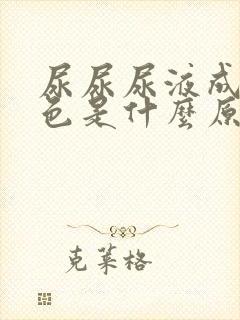 尿尿尿液成
色是什麼原
克莱格